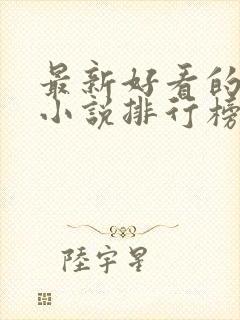 最新好看的
小说排行榜
陸宇星